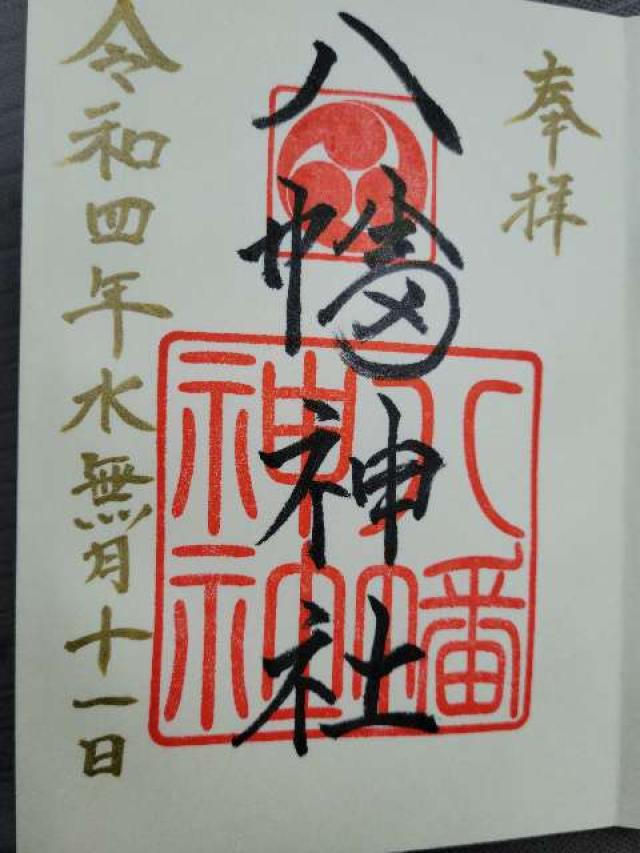 奉拝
八幡神社
八幡
神社
令和四年水無月十一日